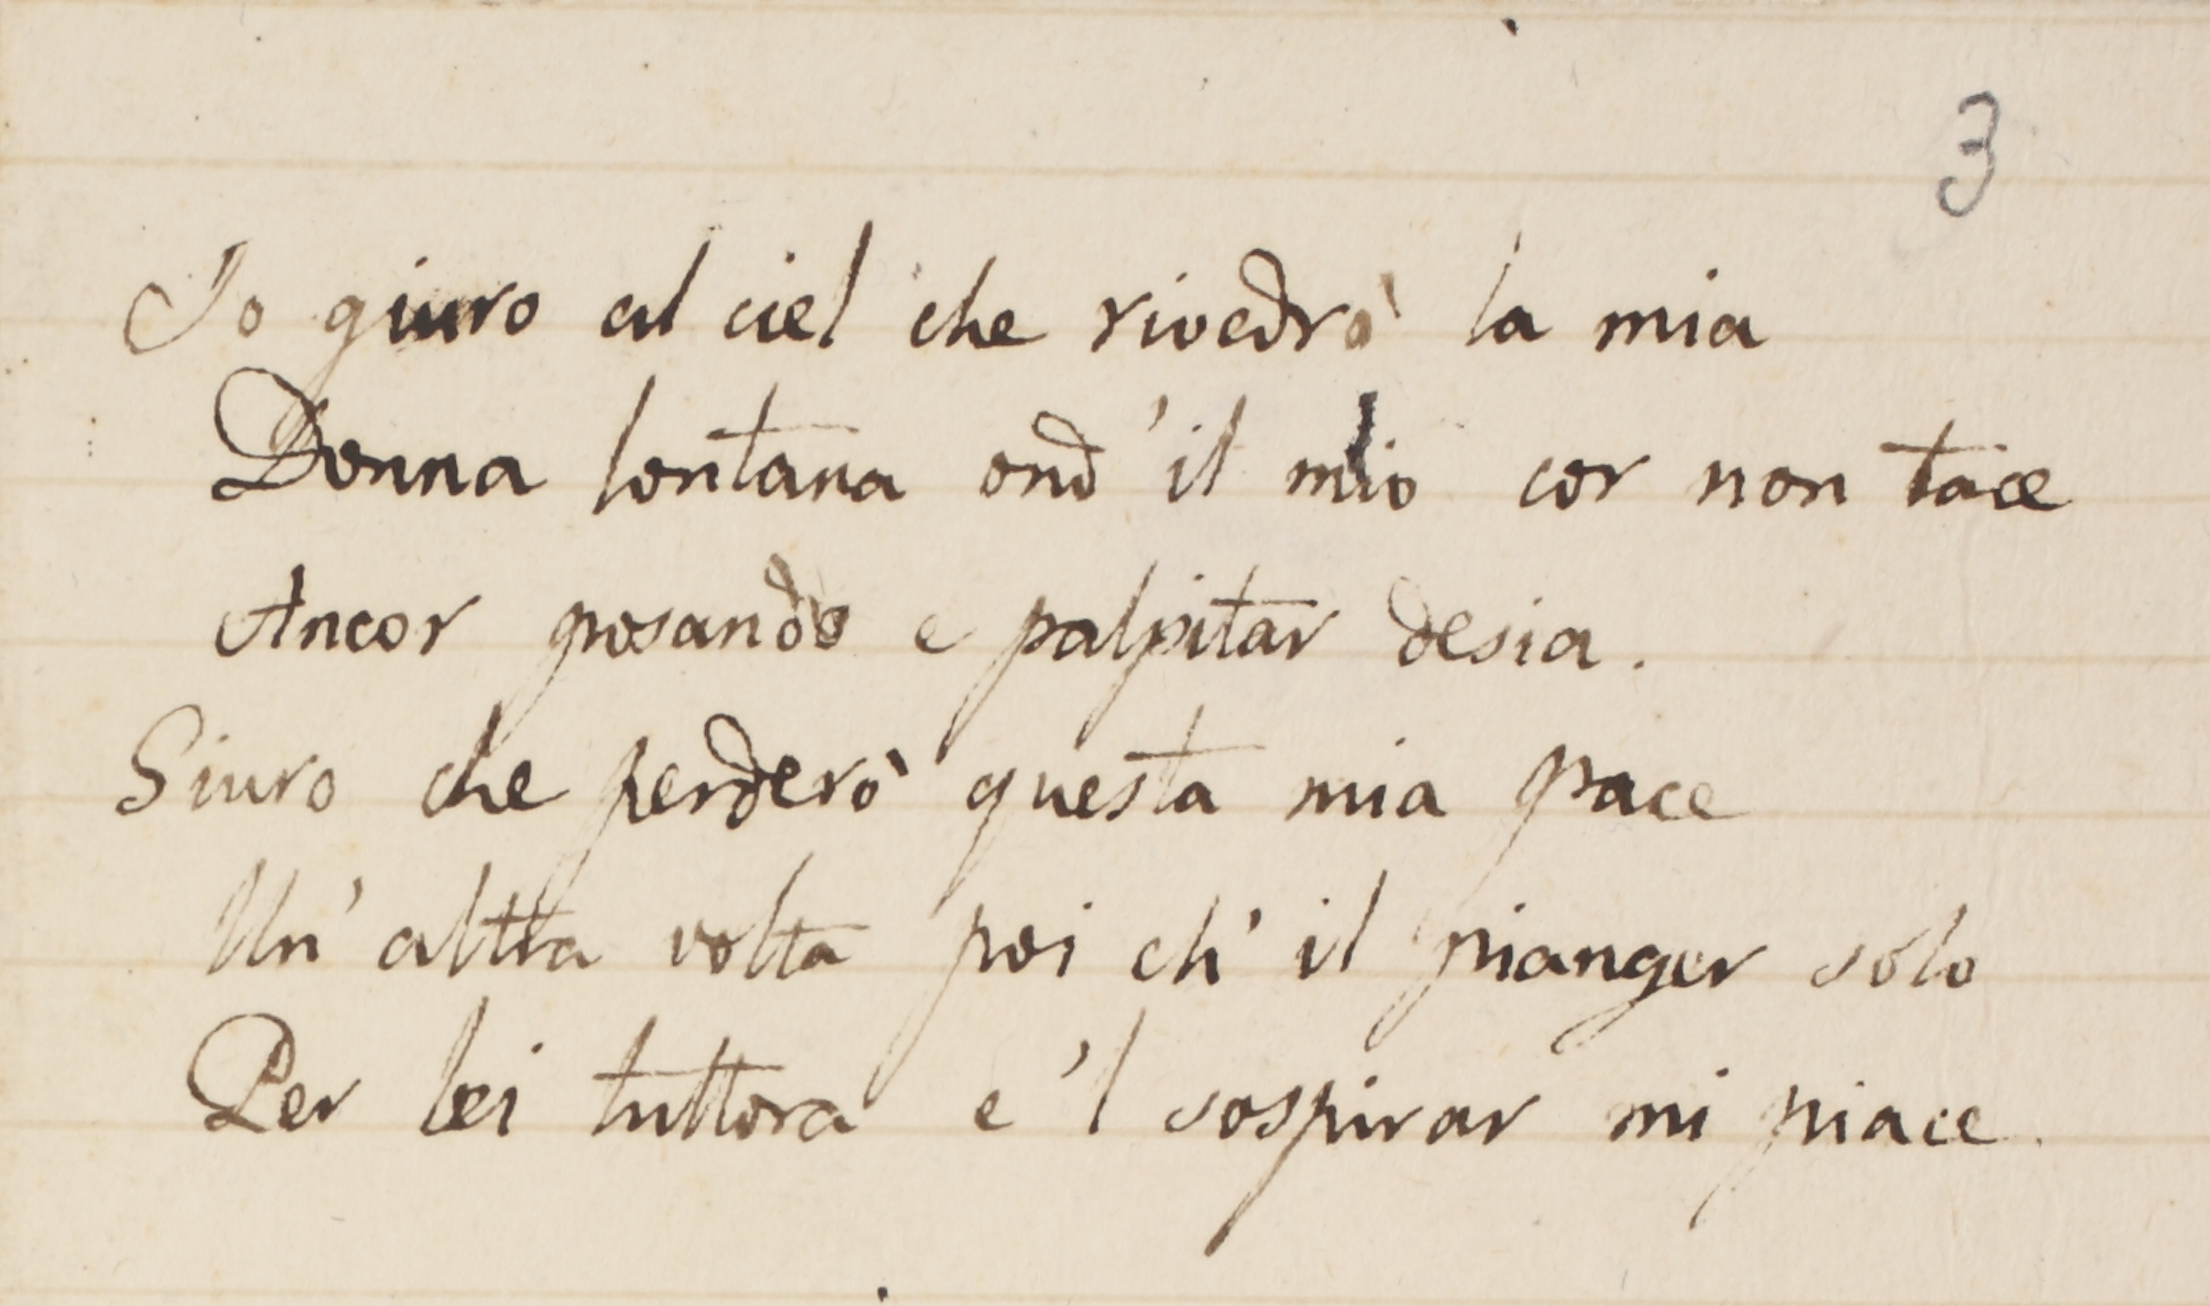 3
Io giuro al ciel che rivedrò la mia
Donna lontana ond'il mio cor non tace
Ancor posando e palpitar desia.
Giuro che perderò questa mia pace
Un'altra volta poi ch'il pianger solo
Per lei tuttora e'l sospirar mi piace.